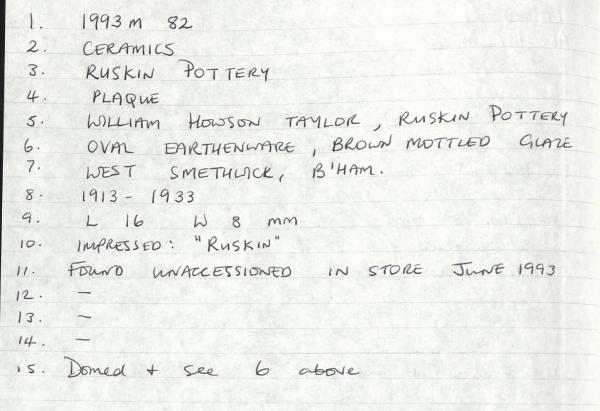 1. 1993 M 82
2. CERAMICS
3. RUSKIN POTTERY
4. PLAQUE
5. WILLIAM HOWSON TAYLOR, RUSKIN POTTERY
6. OVAL EARTHENWARE, BROWN MOTTLED GLAZE
7. WEST SMETHWICK, B'HAM.
8. 1913 - 1933
9. L 16 W 8 mm
10. IMPRESSED: "RUSKIN"
11. FOUND UNACCESSIONED IN STORE JUNE 1993
12. —
13. —
14. —
15. Domed + see 6 above